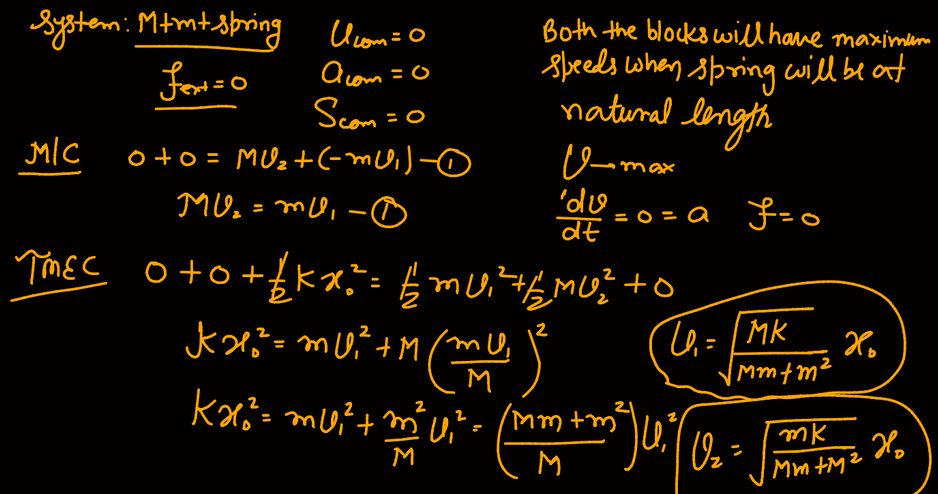 System: M+m+spring
f_ext = 0
U_com = 0
a_com = 0
S_com = 0
Both the blocks will have maximum
speeds when spring will be at
natural length
v → max
dv/dt = 0 = a f = 0
M/C 0 + 0 = Mv₂ + (-mv₁) - ①
Mv₂ = mv₁ - ①
TMEC 0 + 0 + 1/2 K x₀² = 1/2 m v₁² + 1/2 M v₂² + 0
K x₀² = m v₁² + M (m v₁ / M)²
K x₀² = m v₁² + m²/M v₁² = ((Mm + m²) / M) v₁²
v₁ = √(MK / (Mm + m²)) x₀
v₂ = √(mK / (Mm + M²)) x₀